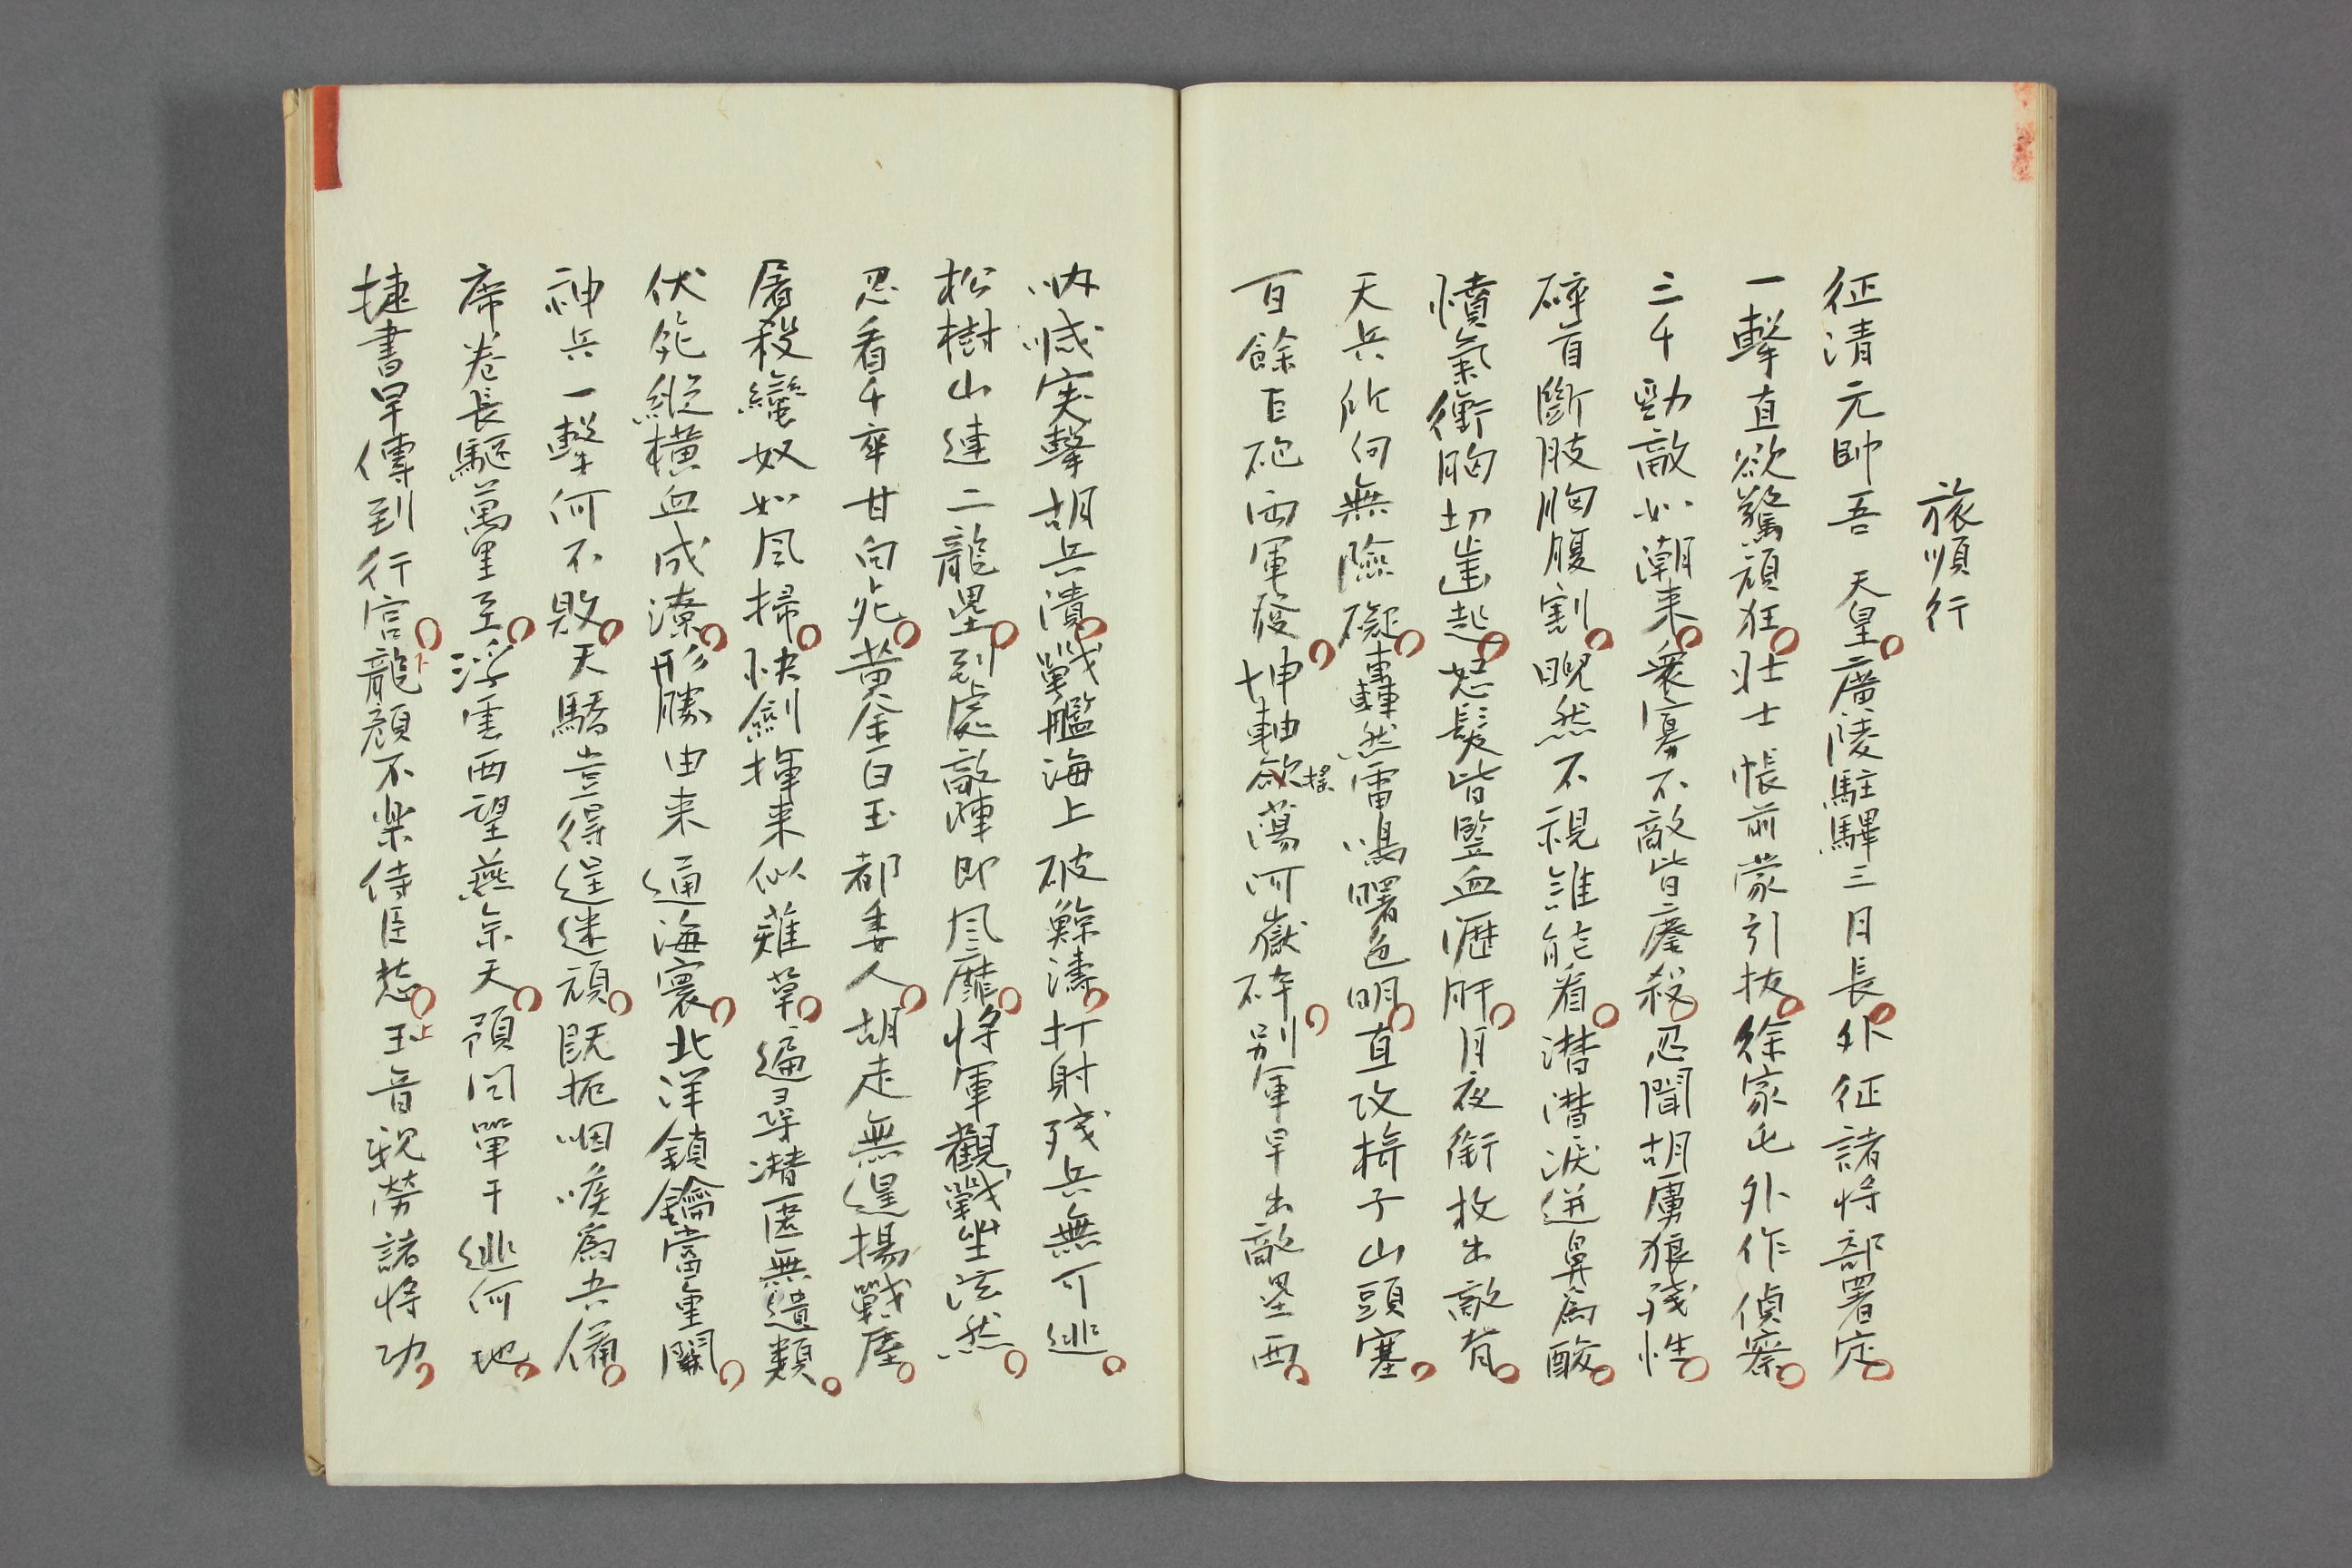 旅順行
征清元帥吾 天皇廣陵駐驆三月長外征諸将部署定
一擊直欲驚頑狂壮士帳前蒙引抜徐家屯外作偵察
三千勁敵如潮来衆寡不敵皆鏖殺忍聞胡虜狼残性
碎首斷肢胸腹割睨然不視誰能看潸潸淚迸鼻為酸
憤氣衝胸切齒起怒髮皆竪血瀝肝月夜銜枚出敵背
天兵所向無險礙轟然雷鳴曙色明直攻椅子山頭塞
百餘巨砲両軍發坤軸欲搖蕩河嶽碎別軍早出敵壘西
吶喊突擊胡兵潰戰艦海上破鯨濤打射残兵無可逃
松樹山連二龍壘到處敵陣即風靡将軍觀戰坐泫然
忍看千卒甘向死黄金白玉都委人胡走無遑揚戰塵
屠殺蠻奴如風掃快劍揮来似薙草遍尋潜匿無遺類
伏死縱橫血成潦形勝由来通海寰北洋鎮鑰當重關
神兵一擊何不敗天驕豈得逞迷頑既扼咽喉為兵備
席卷長驅萬里至浮雲西望燕京天預问單于逃何地
捷書早傳到行宮龍顔不楽侍臣愁玉音親勞諸将功
下
上